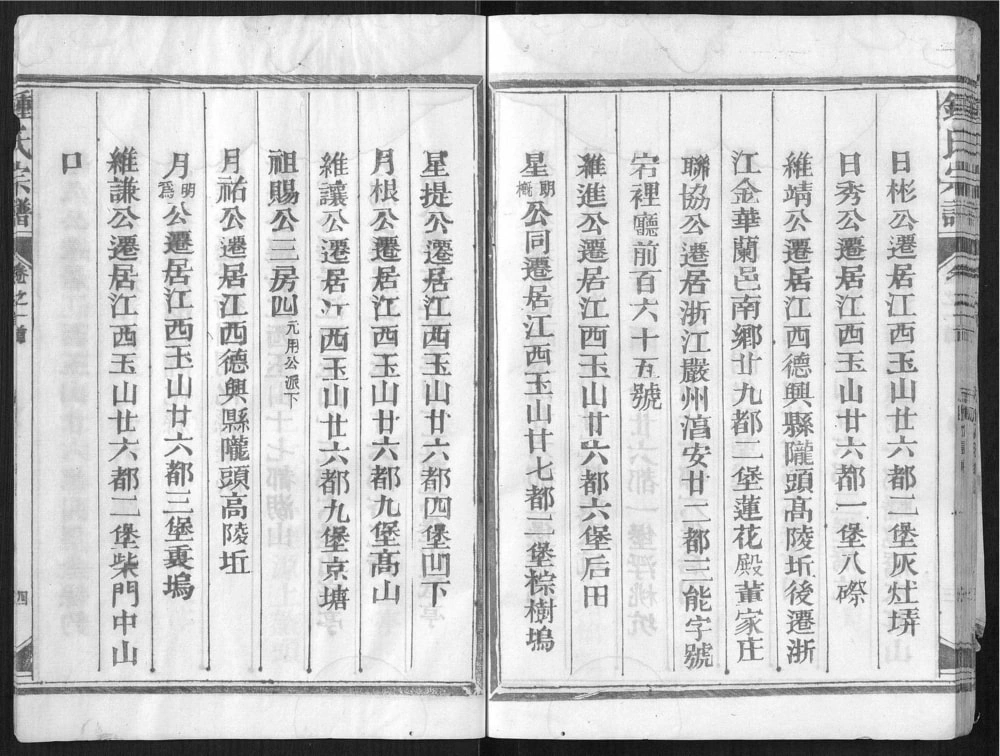 日彬公遷居江西玉山廿六都二堡灰灶塝
日秀公遷居江西玉山廿六都一堡八磜
維靖公遷居江西德興縣隴頭高陵坵後遷浙
江金華蘭邑南鄉廿九都二堡蓮花殿董家庄
聯協公遷居浙江嚴州湻安廿二都三能字號
宕裡廳前百六十五號
維進公遷居江西玉山廿六都六堡后田
星明概公同遷居江西玉山廿七都二堡棕樹塢
星提公遷居江西玉山廿六都四堡凹下
月根公遷居江西玉山廿六都九堡高山
維讓公遷居江西玉山廿六都九堡京塘
祖賜公三房四元用公派下
月祐公遷居江西德興縣隴頭高陵坵
月明爲公遷居江西玉山廿六都三堡裏塢
維謙公遷居江西玉山廿六都二堡柴門中山
口
鍾氏宗譜
卷之首
四